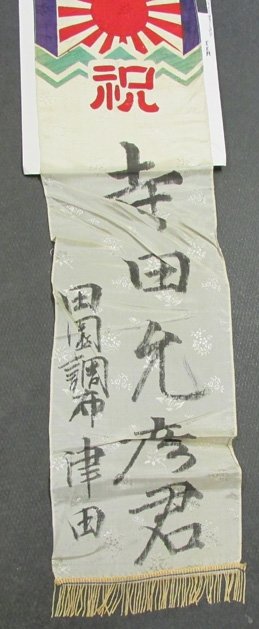 祝
寺田允彦君
田園調布 津田